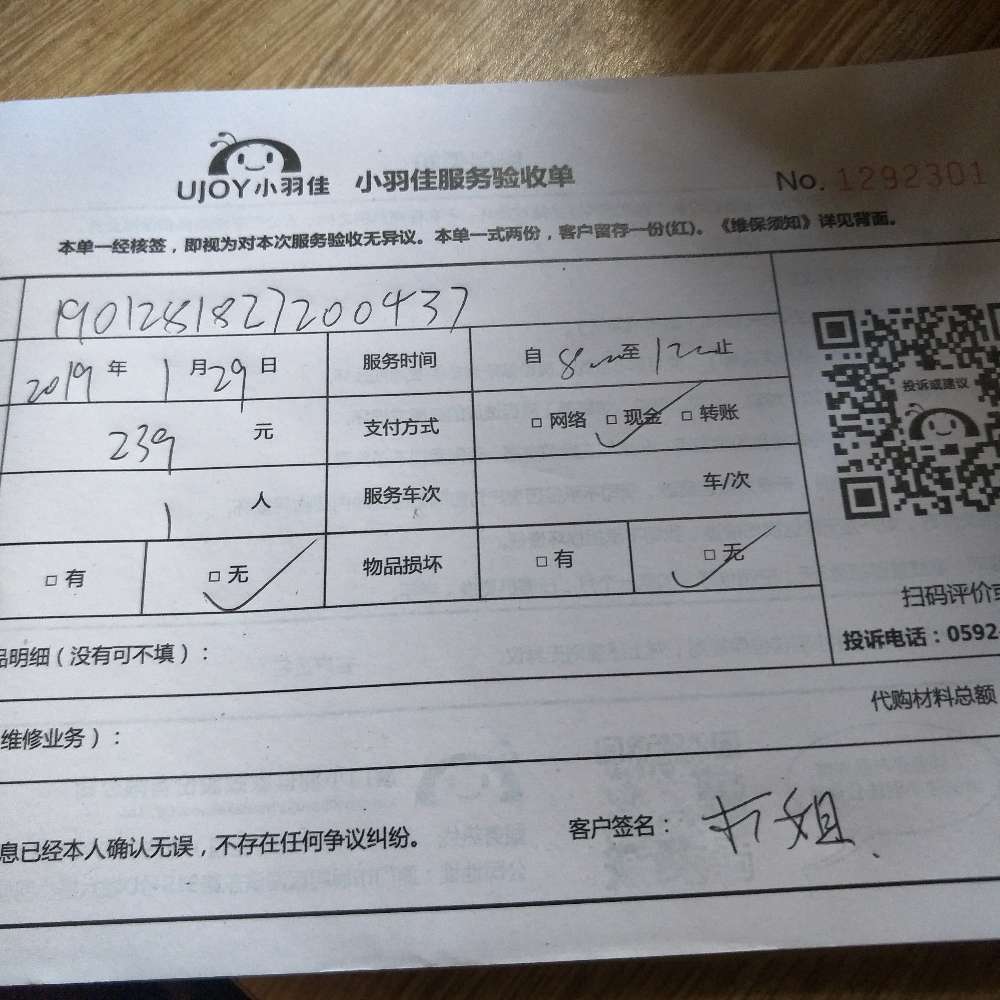 UJOY小羽佳 小羽佳服务验收单 No. 1292301
本单一经核签，即视为对本次服务验收无异议。本单一式两份，客户留存一份(红)。《维保须知》详见背面。
1901281827200437
2019年 1月29日 服务时间 自 8 至 12 止
239 元 支付方式 □ 网络 □ 现金 □ 转账
投诉或建议
1 人 服务车次 车/次
□ 有 □ 无 物品损坏 □ 有 □ 无
扫码评价
品明细（没有可不填）：
投诉电话：0592-
代购材料总额
维修业务）：
息已经本人确认无误，不存在任何争议纠纷。 客户签名： 姐